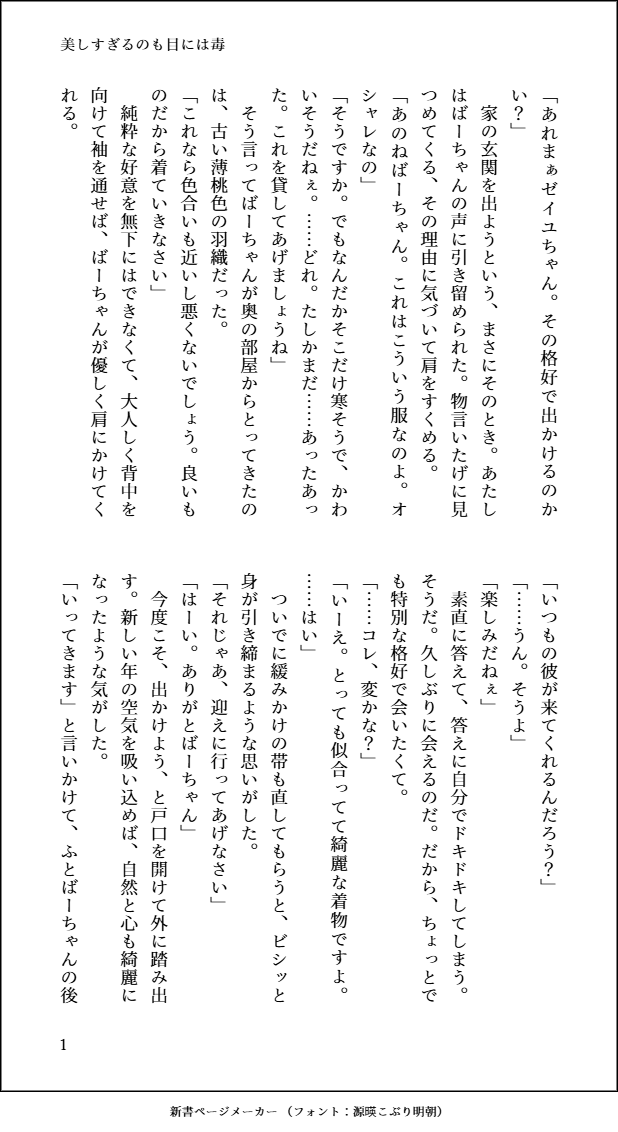 美しすぎるのも目には毒
「あれまぁゼイユちゃん。その格好で出かけるのか
い？」
　家の玄関を出ようという、まさにそのとき。あたし
はばーちゃんの声に引き留められた。物言いたげに見
つめてくる、その理由に気づいて肩をすくめる。
「あのねばーちゃん。これはこういう服なのよ。オ
シャレなの」
「そうですか。でもなんだかそこだけ寒そうで、かわ
いそうだねぇ。……どれ。たしかまだ……あったあっ
た。これを貸してあげましょうね」
　そう言ってばーちゃんが奥の部屋からとってきたの
は、古い薄桃色の羽織だった。
「これなら色合いも近いし悪くないでしょう。良いも
のだから着ていきなさい」
　純粋な好意を無下にはできなくて、大人しく背中を
向けて袖を通せば、ばーちゃんが優しく肩にかけてく
れる。
「いつもの彼が来てくれるんだろう？」
「……うん。そうよ」
「楽しみだねぇ」
　素直に答えて、答えに自分でドキドキしてしまう。
そうだ。久しぶりに会えるのだ。だから、ちょっとで
も特別な格好で会いたくて。
「……コレ、変かな？」
「いーえ。とっても似合ってて綺麗な着物ですよ。
……はい」
　ついでに緩みかけの帯も直してもらうと、ビシッと
身が引き締まるような思いがした。
「それじゃあ、迎えに行ってあげなさい」
「はーい。ありがとばーちゃん」
　今度こそ、出かけよう、と戸口を開けて外に踏み出
す。新しい年の空気を吸い込めば、自然と心も綺麗に
なったような気がした。
「いってきます」と言いかけて、ふとばーちゃんの後
1
新書ページメーカー（フォント：源暎こぶり明朝）